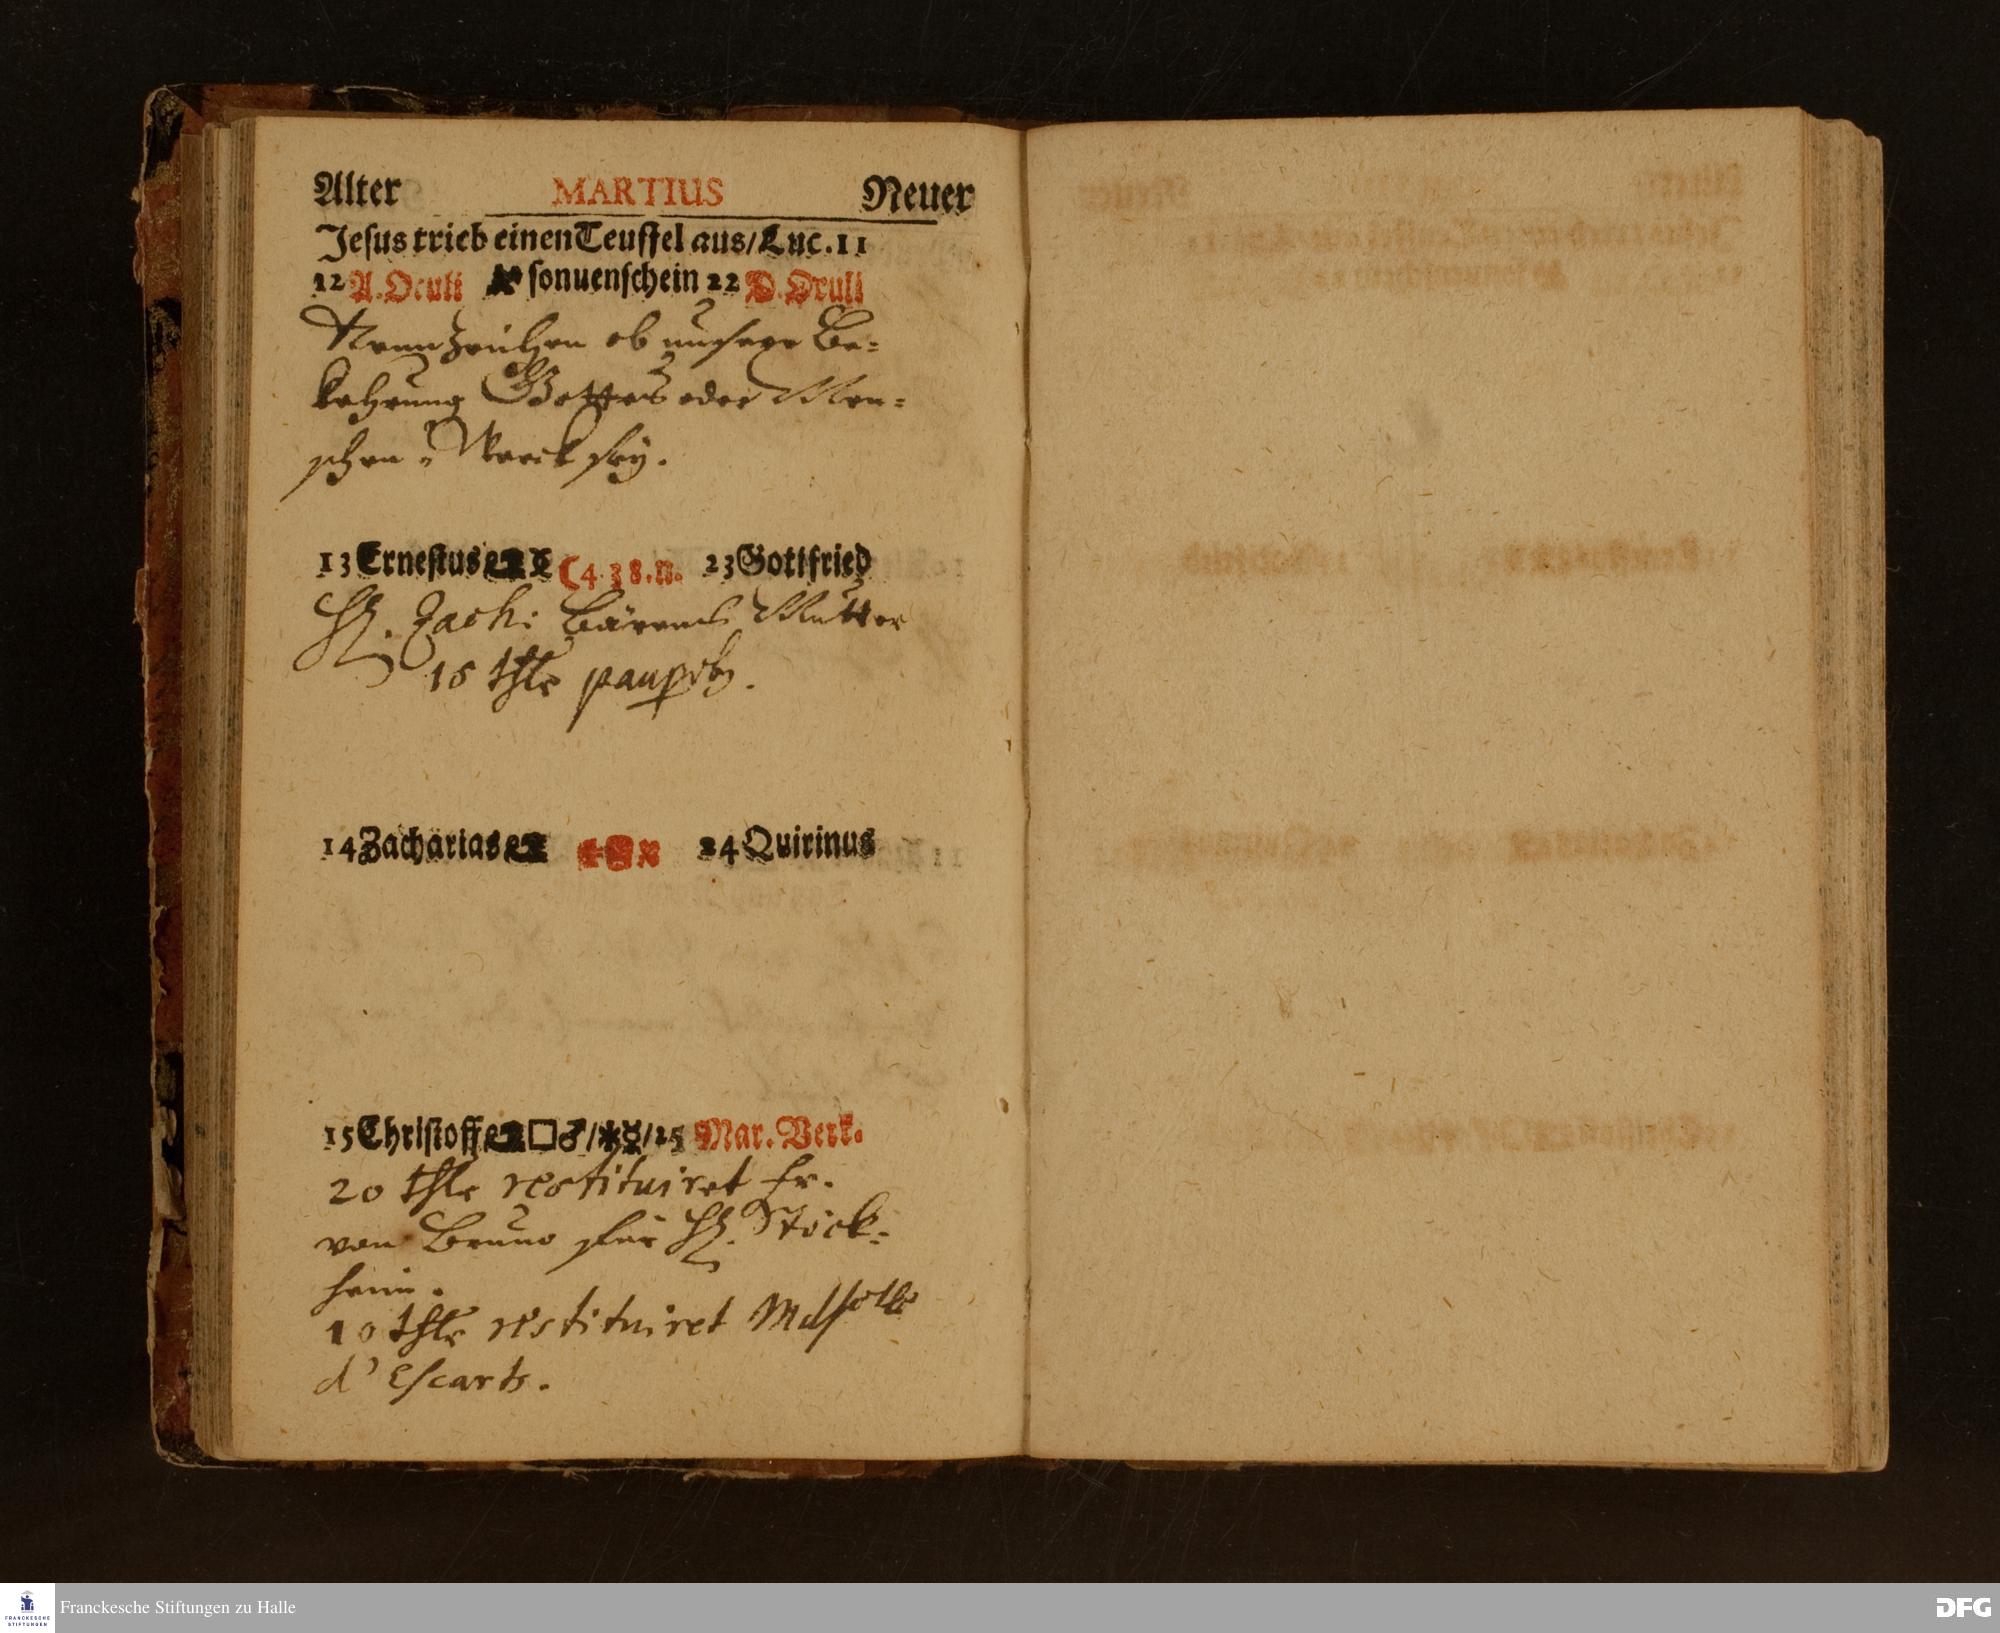 Alter MARTIUS Neuer
Jesus trieb einen Teuffel aus/Luc.11
12 A. Oculi sonuenschein 22 D. Oculi
Kennzeichen ob unsere Be-
kehrung Gottes oder Men-
schen Werck sey.
13 Ernestus ☾ 4.38.n. 23 Gottfried
H. Zach: Bärens Mutter
15 thlr paup.
14 Zacharias 24 Quirinus
15 Christoff □♂/⚹☿/25 Mar. Verk.
20 thlr restituiret Fr.
von Bruno für H. Stöck-
heim.
10 thlr restituiret Mdselle
d'Escarts.
Franckesche Stiftungen zu Halle
FRANCKESCHE
STIFTUNGEN
DFG